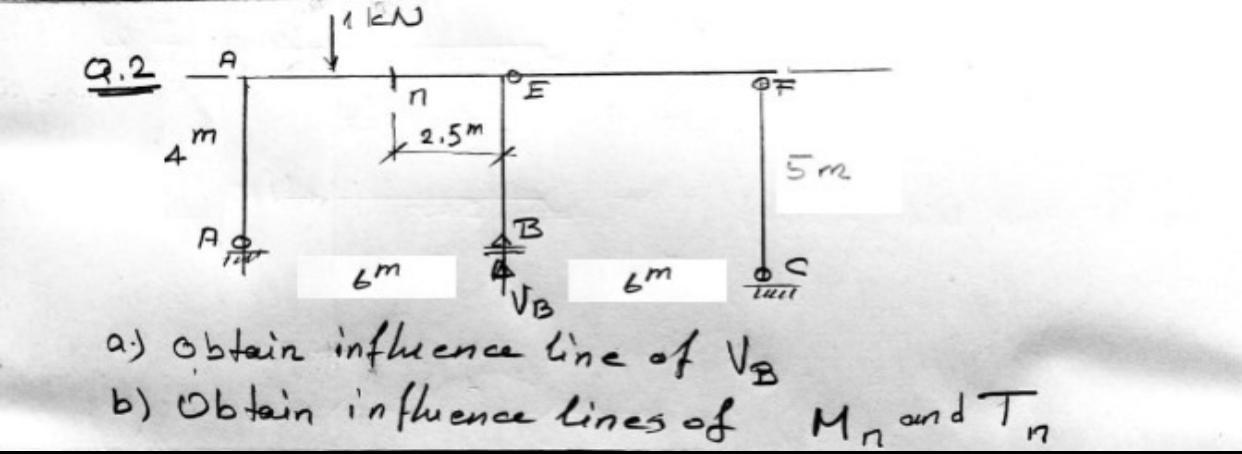 1 kN
Q.2 A
n E F
4 m 2.5 m
5 m
A B
6 m 6 m C
VB
a.) Obtain influence line of VB
b) Obtain influence lines of Mn and Tn